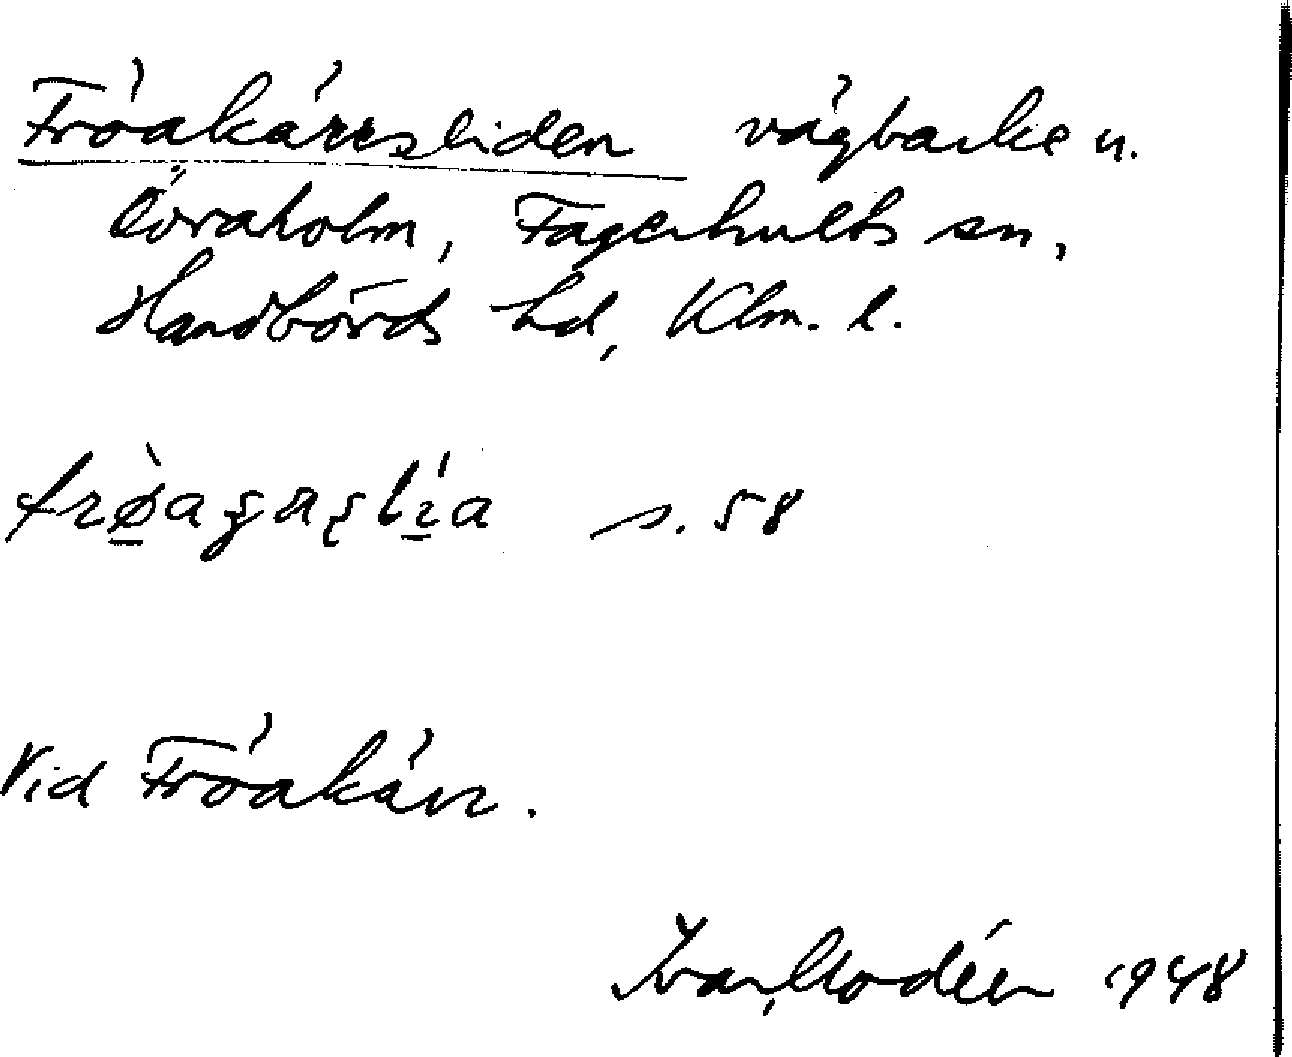 Fröakärrsliden vägbacke u.
Lövaholm, Fagerhults sn,
Handbörds hd, Klm. l.
s. 58
Vid Fröakärr.
Ivar Modéer 1948